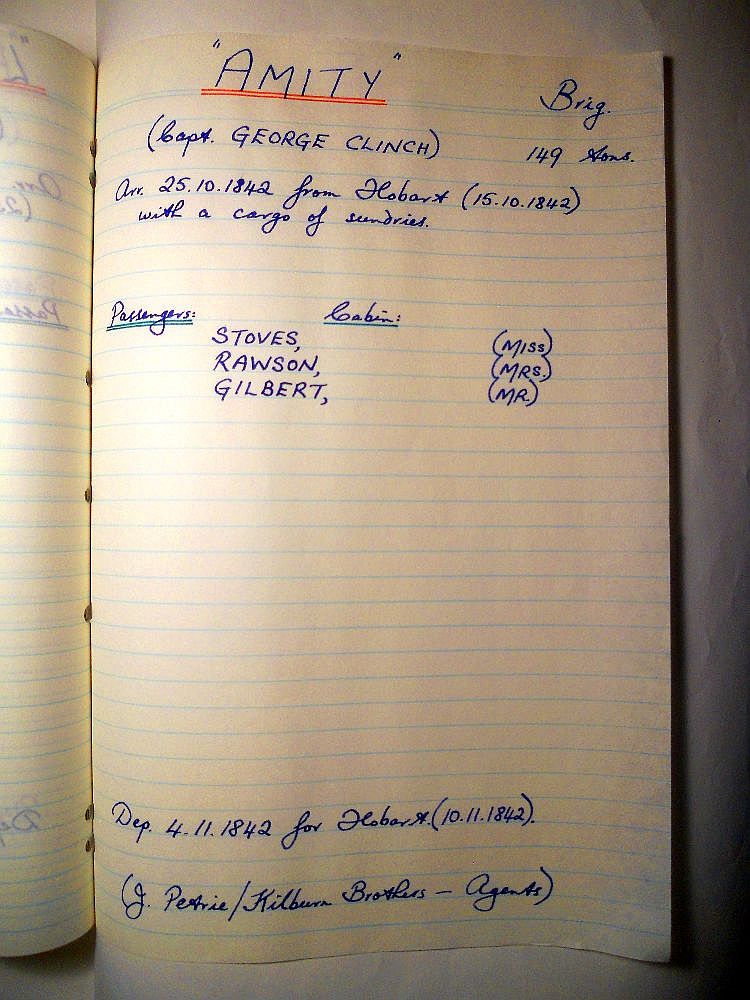 "AMITY"
Brig.
(Capt. GEORGE CLINCH)
149 tons.
Arr. 25.10.1842 from Hobart (15.10.1842)
with a cargo of sundries.
Passengers: Cabin:
STOVES, (MISS)
RAWSON, (MRS.)
GILBERT, (MR.)
Dep. 4.11.1842 for Hobart.(10.11.1842).
(J. Petrie/Kilburn Brothers – Agents)